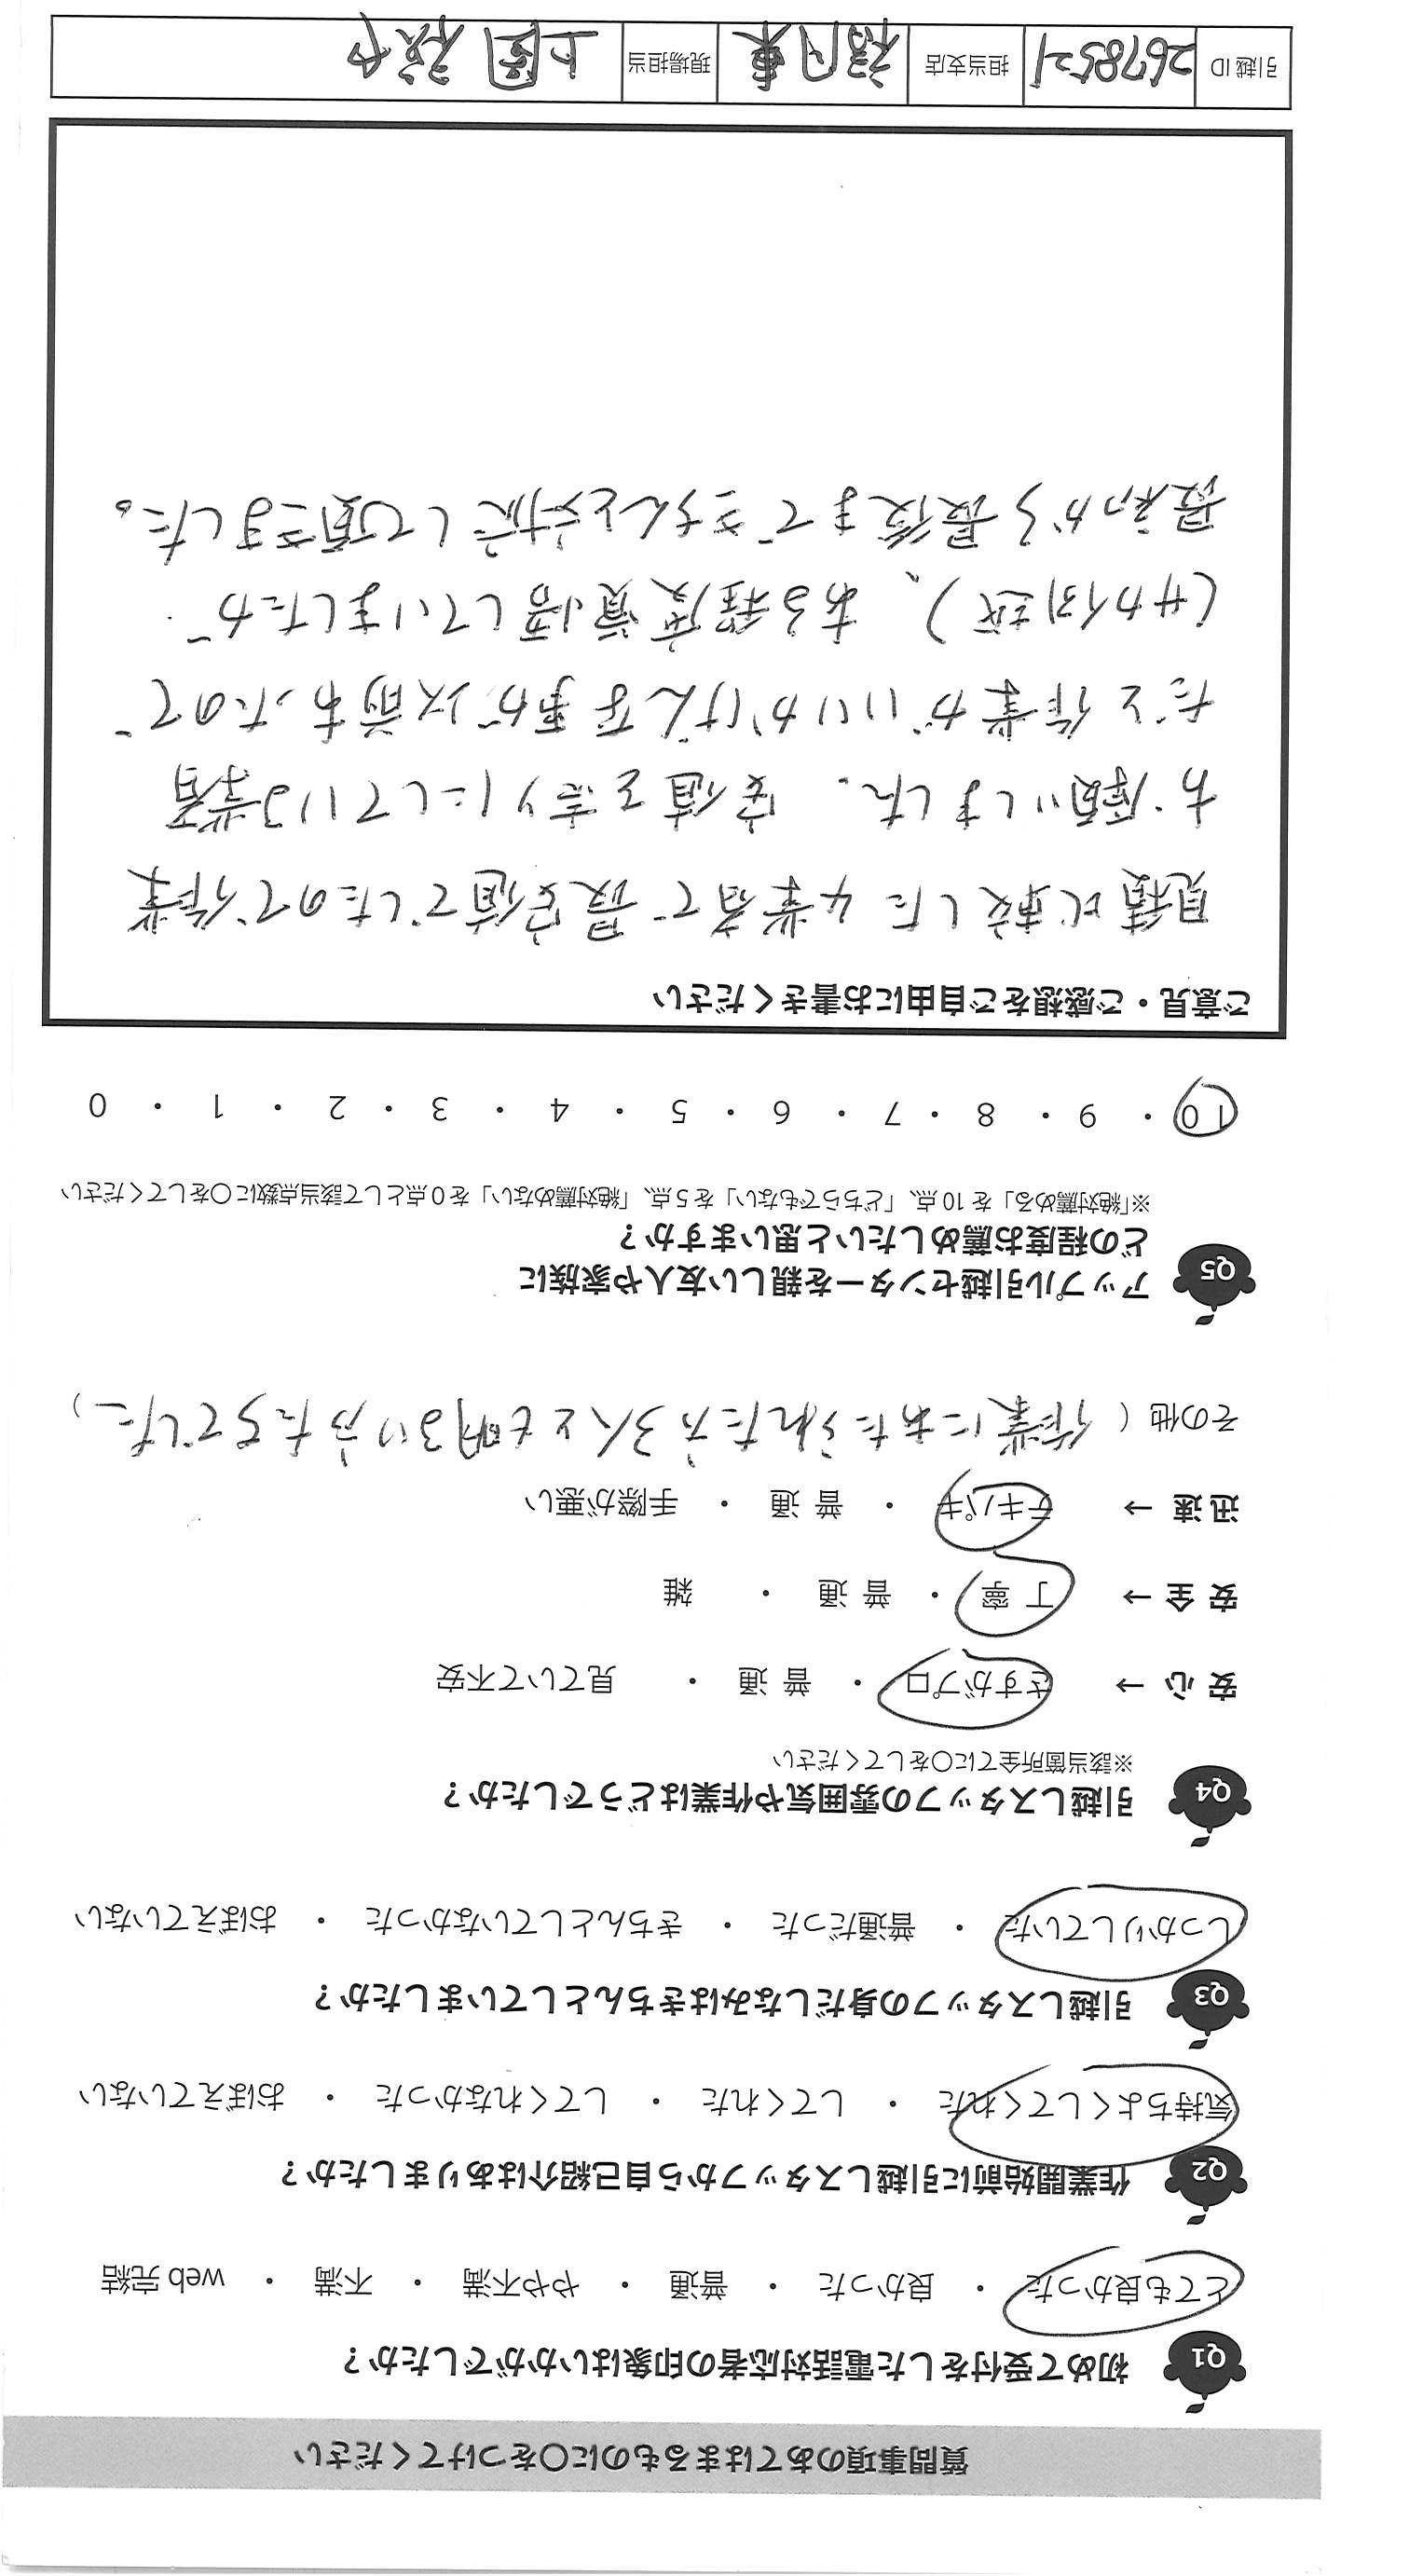 質問事項のあてはまるものに○をつけてください
Q1 初めて受付をした電話対応者の印象はいかがでしたか？
とても良かった ・ 良かった ・ 普通 ・ やや不満 ・ 不満 ・ web 完結
Q2 作業開始前に引越しスタッフから自己紹介はありましたか？
気持ちよくしてくれた ・ してくれた ・ してくれなかった ・ おぼえていない
Q3 引越しスタッフの身だしなみはきちんとしていましたか？
しっかりしていた ・ 普通だった ・ きちんとしていなかった ・ おぼえていない
Q4 引越しスタッフの雰囲気や作業はどうでしたか？
※該当箇所全てに○をしてください
安 心 → さすがプロ ・ 普 通 ・ 見ていて不安
安 全 → 丁 寧 ・ 普 通 ・ 雑
迅 速 → テキパキ ・ 普 通 ・ 手際が悪い
その他（ 作業にあたられた方3人とも明るい方たちでした ）
Q5 アップル引越センターを親しい友人や家族に
どの程度お薦めしたいと思いますか？
※「絶対薦める」を 10 点、「どちらでもない」を 5 点、「絶対薦めない」を 0 点として該当点数に○をしてください
10 ・ 9 ・ 8 ・ 7 ・ 6 ・ 5 ・ 4 ・ 3 ・ 2 ・ 1 ・ 0
ご意見・ご感想をご自由にお書きください
見積比較した4業者で最安値でしたので作業
お願いしました。安値を売りにしている業者
だと作業がいいかげんな事が以前あったので
(サカイ引越)、ある程度覚悟していましたが
最初から最後まできちんと対応して頂きました。
引越 ID 2678521 担当支店 福岡東 現場担当 上園